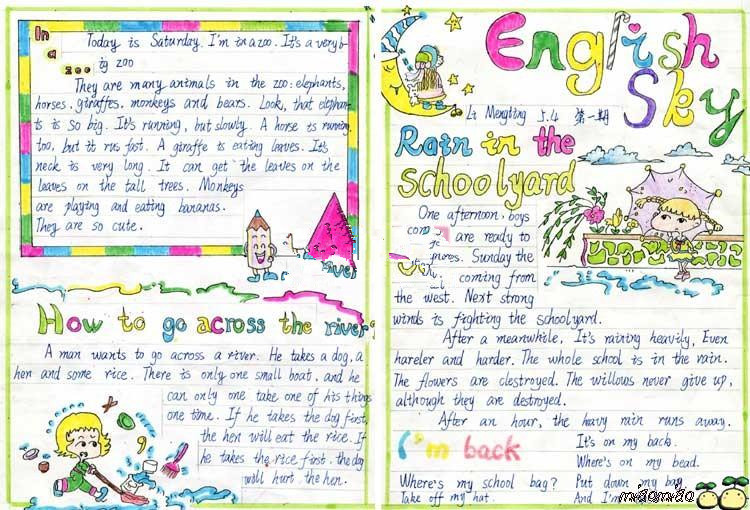 In
a
zoo
Today is Saturday. I'm in a zoo. It's a very b-
ig zoo
They are many animals in the zoo: elephants,
horses, giraffes, monkeys and bears. Look, that elephan-
ts is so big. It's running, but slowly. A horse is running
too, but it rus fast. A giraffe is eating leaves. It's
neck is very long. It can get the leaves on the
leaves on the tall trees. Monkeys
are playing and eating bananas.
They are so cute.
river
How to go across the river?
A man wants to go across a river. He takes a dog, a
hen and some rice. There is only one small boat, and he
can only one take one of his things
one time. If he takes the dog first,
the hen will eat the rice. If
he takes the rice first, the dog
will hurt the hen.
English
Sky
Li Mengting 5.4 第一期
Rain in the
schoolyard
One afternoon, boys
are ready to
Sunday the
coming from
the west. Next strong
winds is fighting the schoolyard.
After a meanwhile, It's raining heavily, Even
hareler and harder. The whole school is in the rain.
The flowers are clestroyed. The willows never give up,
although they are destroyed.
After an hour, the havy rain runs away.
I'm back
Where's my school bag?
Take off my hat.
It's on my back.
Where's on my bead.
Put down my bag
And I'm
miaomiao